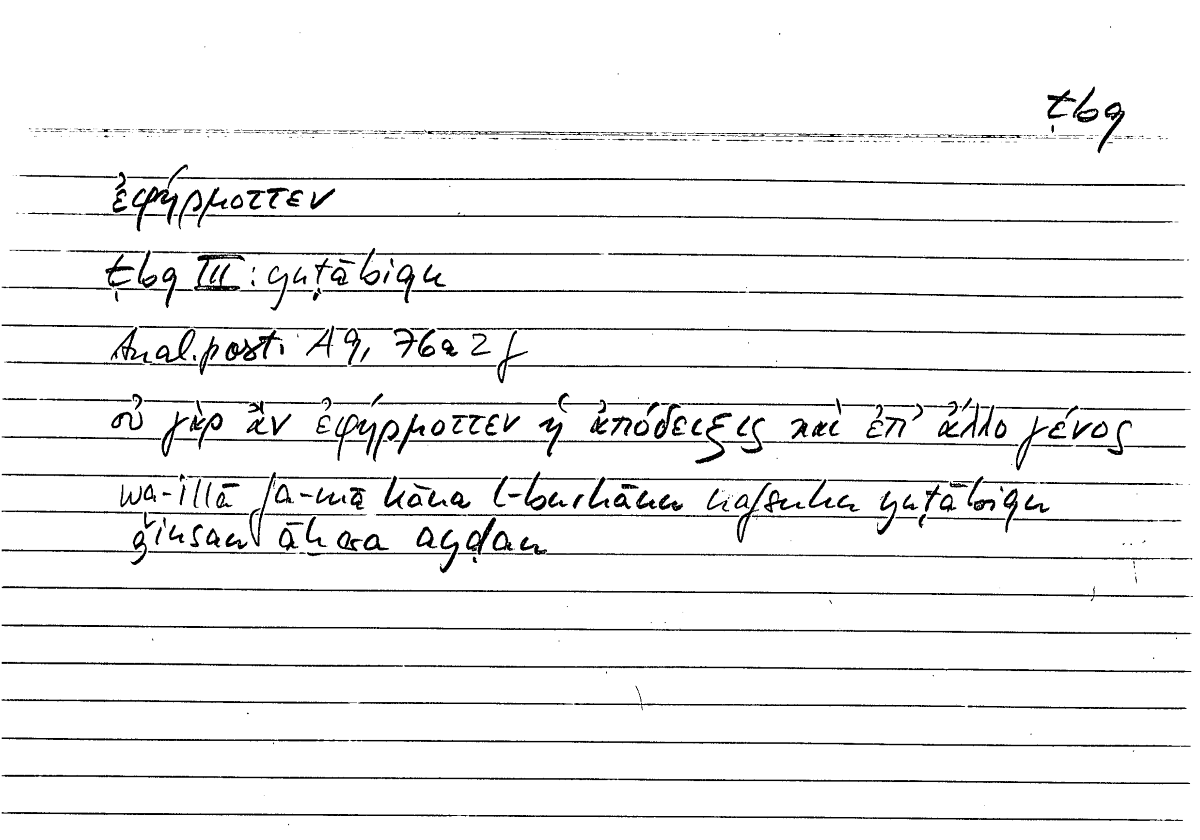 ṭbq
ἐφήρμοττεν
ṭbq III: yuṭābiqu
Anal. post. A 9, 76a2f
οὐ γὰρ ἂν ἐφήρμοττεν ἡ ἀπόδειξις καὶ ἐπ' ἄλλο γένος
wa-illā fa-mā kāna l-burhānu nafsuhu yuṭābiqu
ǧinsan āḫara ayḍan